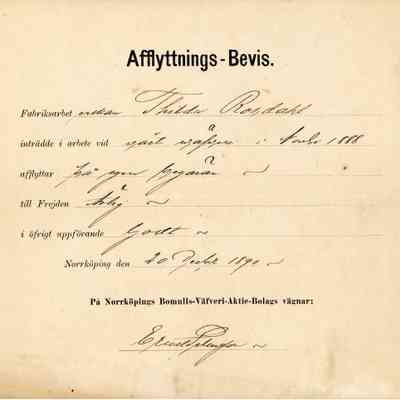 Afflyttnings-Bevis.
Fabriksarbet erskan Thilda Rosdahl
inträdde i arbete vid vårt väfveri i Novbr 1888
afflyttar på egen begäran
till Frejden ärlig
i öfrigt uppförande Godt
Norrköping den 20 Decbr 1890
På Norrköpings Bomulls-Väfveri-Aktie-Bolags vägnar: